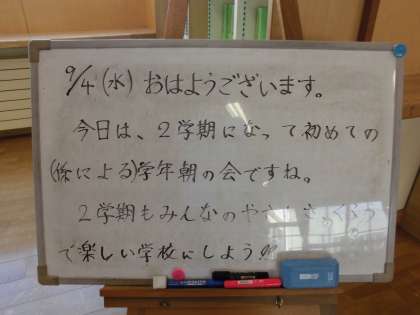 9/4(水) おはようございます。
今日は、2学期になって初めての
学年朝の会ですね。
2学期もみんなのやさしさ
で楽しい学校にしよう